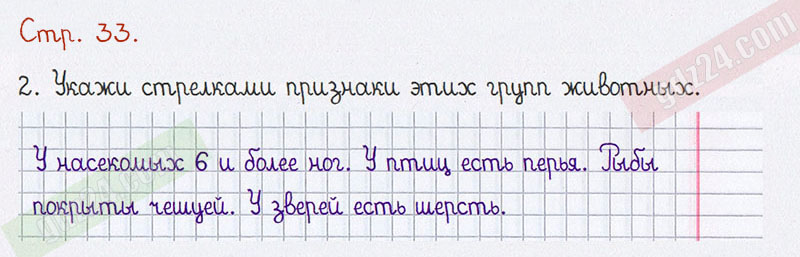 Стр. 33.
gdz24.com
2. Укажи стрелками признаки этих групп животных.
У насекомых 6 и более ног. У птиц есть перья. Рыбы
покрыты чешуей. У зверей есть шерсть.
gdz24.com